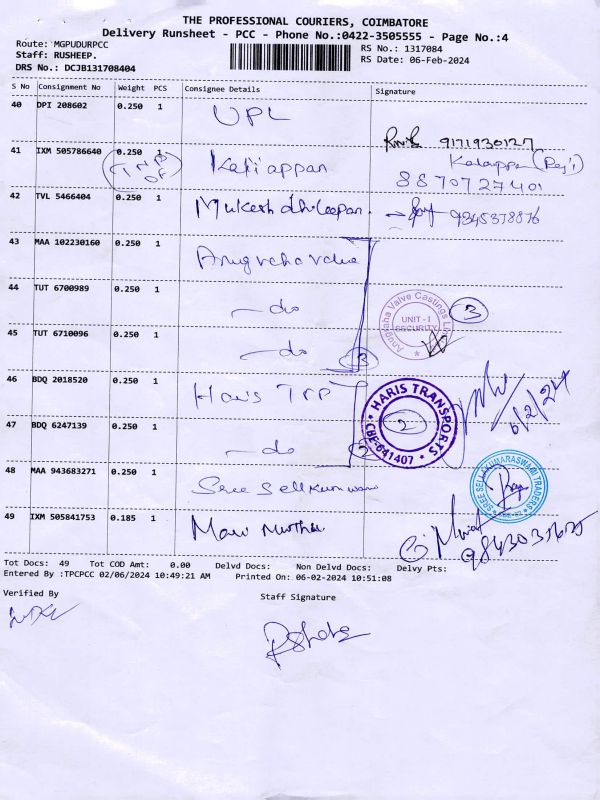 THE PROFESSIONAL COURIERS, COIMBATORE
Delivery Runsheet - PCC - Phone No.:0422-3505555 - Page No.:4
Route: MGPUDURPCC
Staff: RUSHEEP.
DRS No.: DCJB131708404
RS No.: 1317084
RS Date: 06-Feb-2024
S No Consignment No Weight PCS Consignee Details Signature
40 DPI 208602 0.250 1 UPL 9171930127
41 IXM 505786640 0.250 1 Kaliappan
8870727401
42 TVL 5466404 0.250 1 Mukesh dhileepan. 9345378876
43 MAA 102230160 0.250 1
44 TUT 6700989 0.250 1 -do 3
Anugraha Valve Castings
UNIT-I
SECURITY
45 TUT 6710096 0.250 1 -do 3
46 BDQ 2018520 0.250 1 Haris TRP
HARIS TRANSPORTS
CBE-641407
2
6/2/24
47 BDQ 6247139 0.250 1 -do 2
48 MAA 943683271 0.250 1 Sree
SREE SELLAKUMARASWAMI TRADERS
49 IXM 505841753 0.185 1
Tot Docs: 49 Tot COD Amt: 0.00 Delvd Docs: Non Delvd Docs: Delvy Pts:
Entered By :TPCPCC 02/06/2024 10:49:21 AM Printed On: 06-02-2024 10:51:08
Verified By
Staff Signature